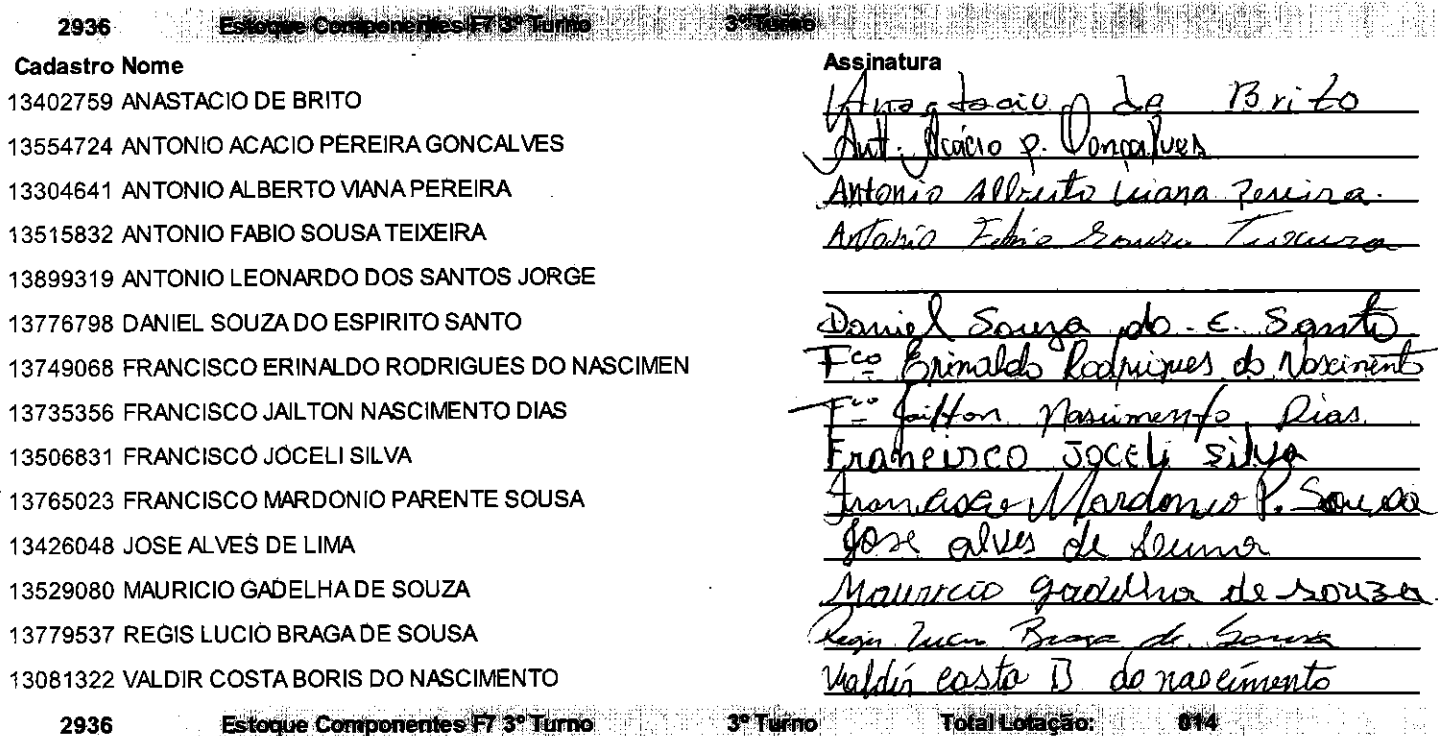 2936 Estoque Componentes F7 3º Turno 3º Turno
Cadastro Nome Assinatura
13402759 ANASTACIO DE BRITO Anastacio de Brito
13554724 ANTONIO ACACIO PEREIRA GONCALVES Ant. Acácio p. Gonçalves
13304641 ANTONIO ALBERTO VIANA PEREIRA Antonio Alberto Viana Pereira.
13515832 ANTONIO FABIO SOUSA TEIXEIRA Antonio Fabio Sousa Teixeira
13899319 ANTONIO LEONARDO DOS SANTOS JORGE
13776798 DANIEL SOUZA DO ESPIRITO SANTO Daniel Souza do E. Santo
13749068 FRANCISCO ERINALDO RODRIGUES DO NASCIMEN Fco Erinaldo Rodrigues do Nascimento
13735356 FRANCISCO JAILTON NASCIMENTO DIAS Fco Jailton Nascimento Dias.
13506831 FRANCISCO JOCELI SILVA Francisco Joceli Silva
13765023 FRANCISCO MARDONIO PARENTE SOUSA Francisco Mardonio P. Sousa
13426048 JOSE ALVES DE LIMA Jose alves de
13529080 MAURICIO GADELHA DE SOUZA Mauricio gadelha de souza
13779537 REGIS LUCIO BRAGA DE SOUSA Regis Lucio Braga de Sousa
13081322 VALDIR COSTA BORIS DO NASCIMENTO Valdir costa B do nascimento
2936 Estoque Componentes F7 3º Turno 3º Turno Total Lotação: 014